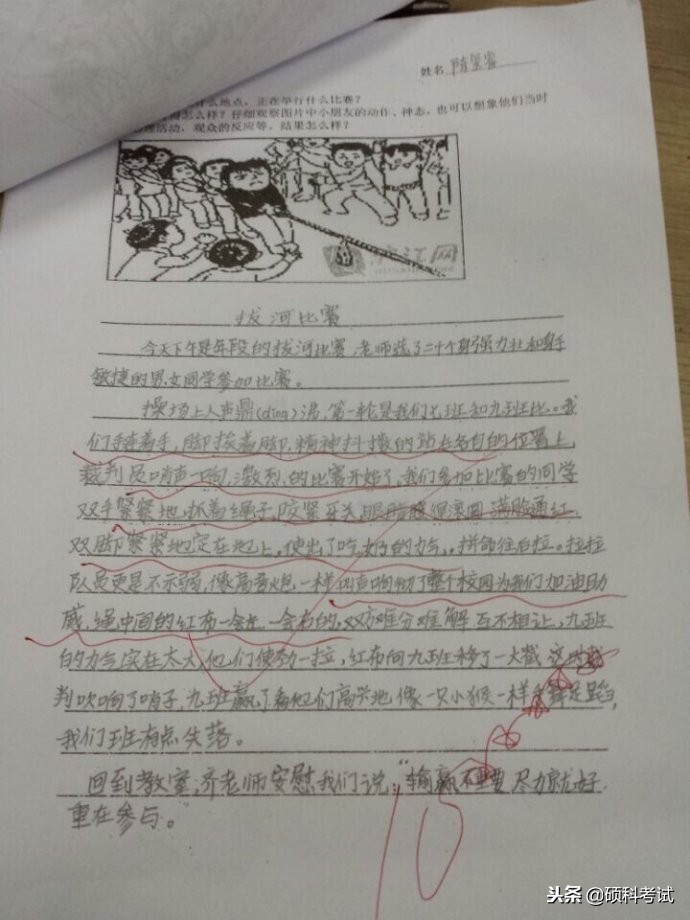 姓名 陈
什么地点，正在举行什么比赛？
得怎么样？仔细观察图片中小朋友的动作、神态，也可以想象他们当时
理活动，观众的反应等。结果怎么样？
沪江网
拔河比赛
今天下午是年段的拔河比赛，老师选了二十个身强力壮和身手
敏捷的男女同学参加比赛。
操场上人声鼎(dǐng)沸，第一轮是我们七班和九班比。我
们手挨着手，脚挨着脚，精神抖擞的站在各自的位置上，
裁判员哨声一响，激烈的比赛开始了，我们参加比赛的同学
双手紧紧地抓着绳子，咬紧牙关眼睛瞪得滚圆满脸通红，
双脚紧紧地定在地上，使出了吃奶的力气，拼命往后拉。拉拉
队员更是不示弱，像高音炮一样叫声响彻了整个校园为我们加油助
威，绳中间的红布一会左一会右的，双方难分难解互不相让，九班
的力气实在太大，他们使劲一拉，红布向九班移了一大截，这时裁
判吹响了哨子，九班赢了看他们高兴地像一只小猴一样手舞足蹈，
我们班有点失落。
回到教室，齐老师安慰我们说，“输赢不重要尽力就好
重在参与。”
10
头条 @硕科考试